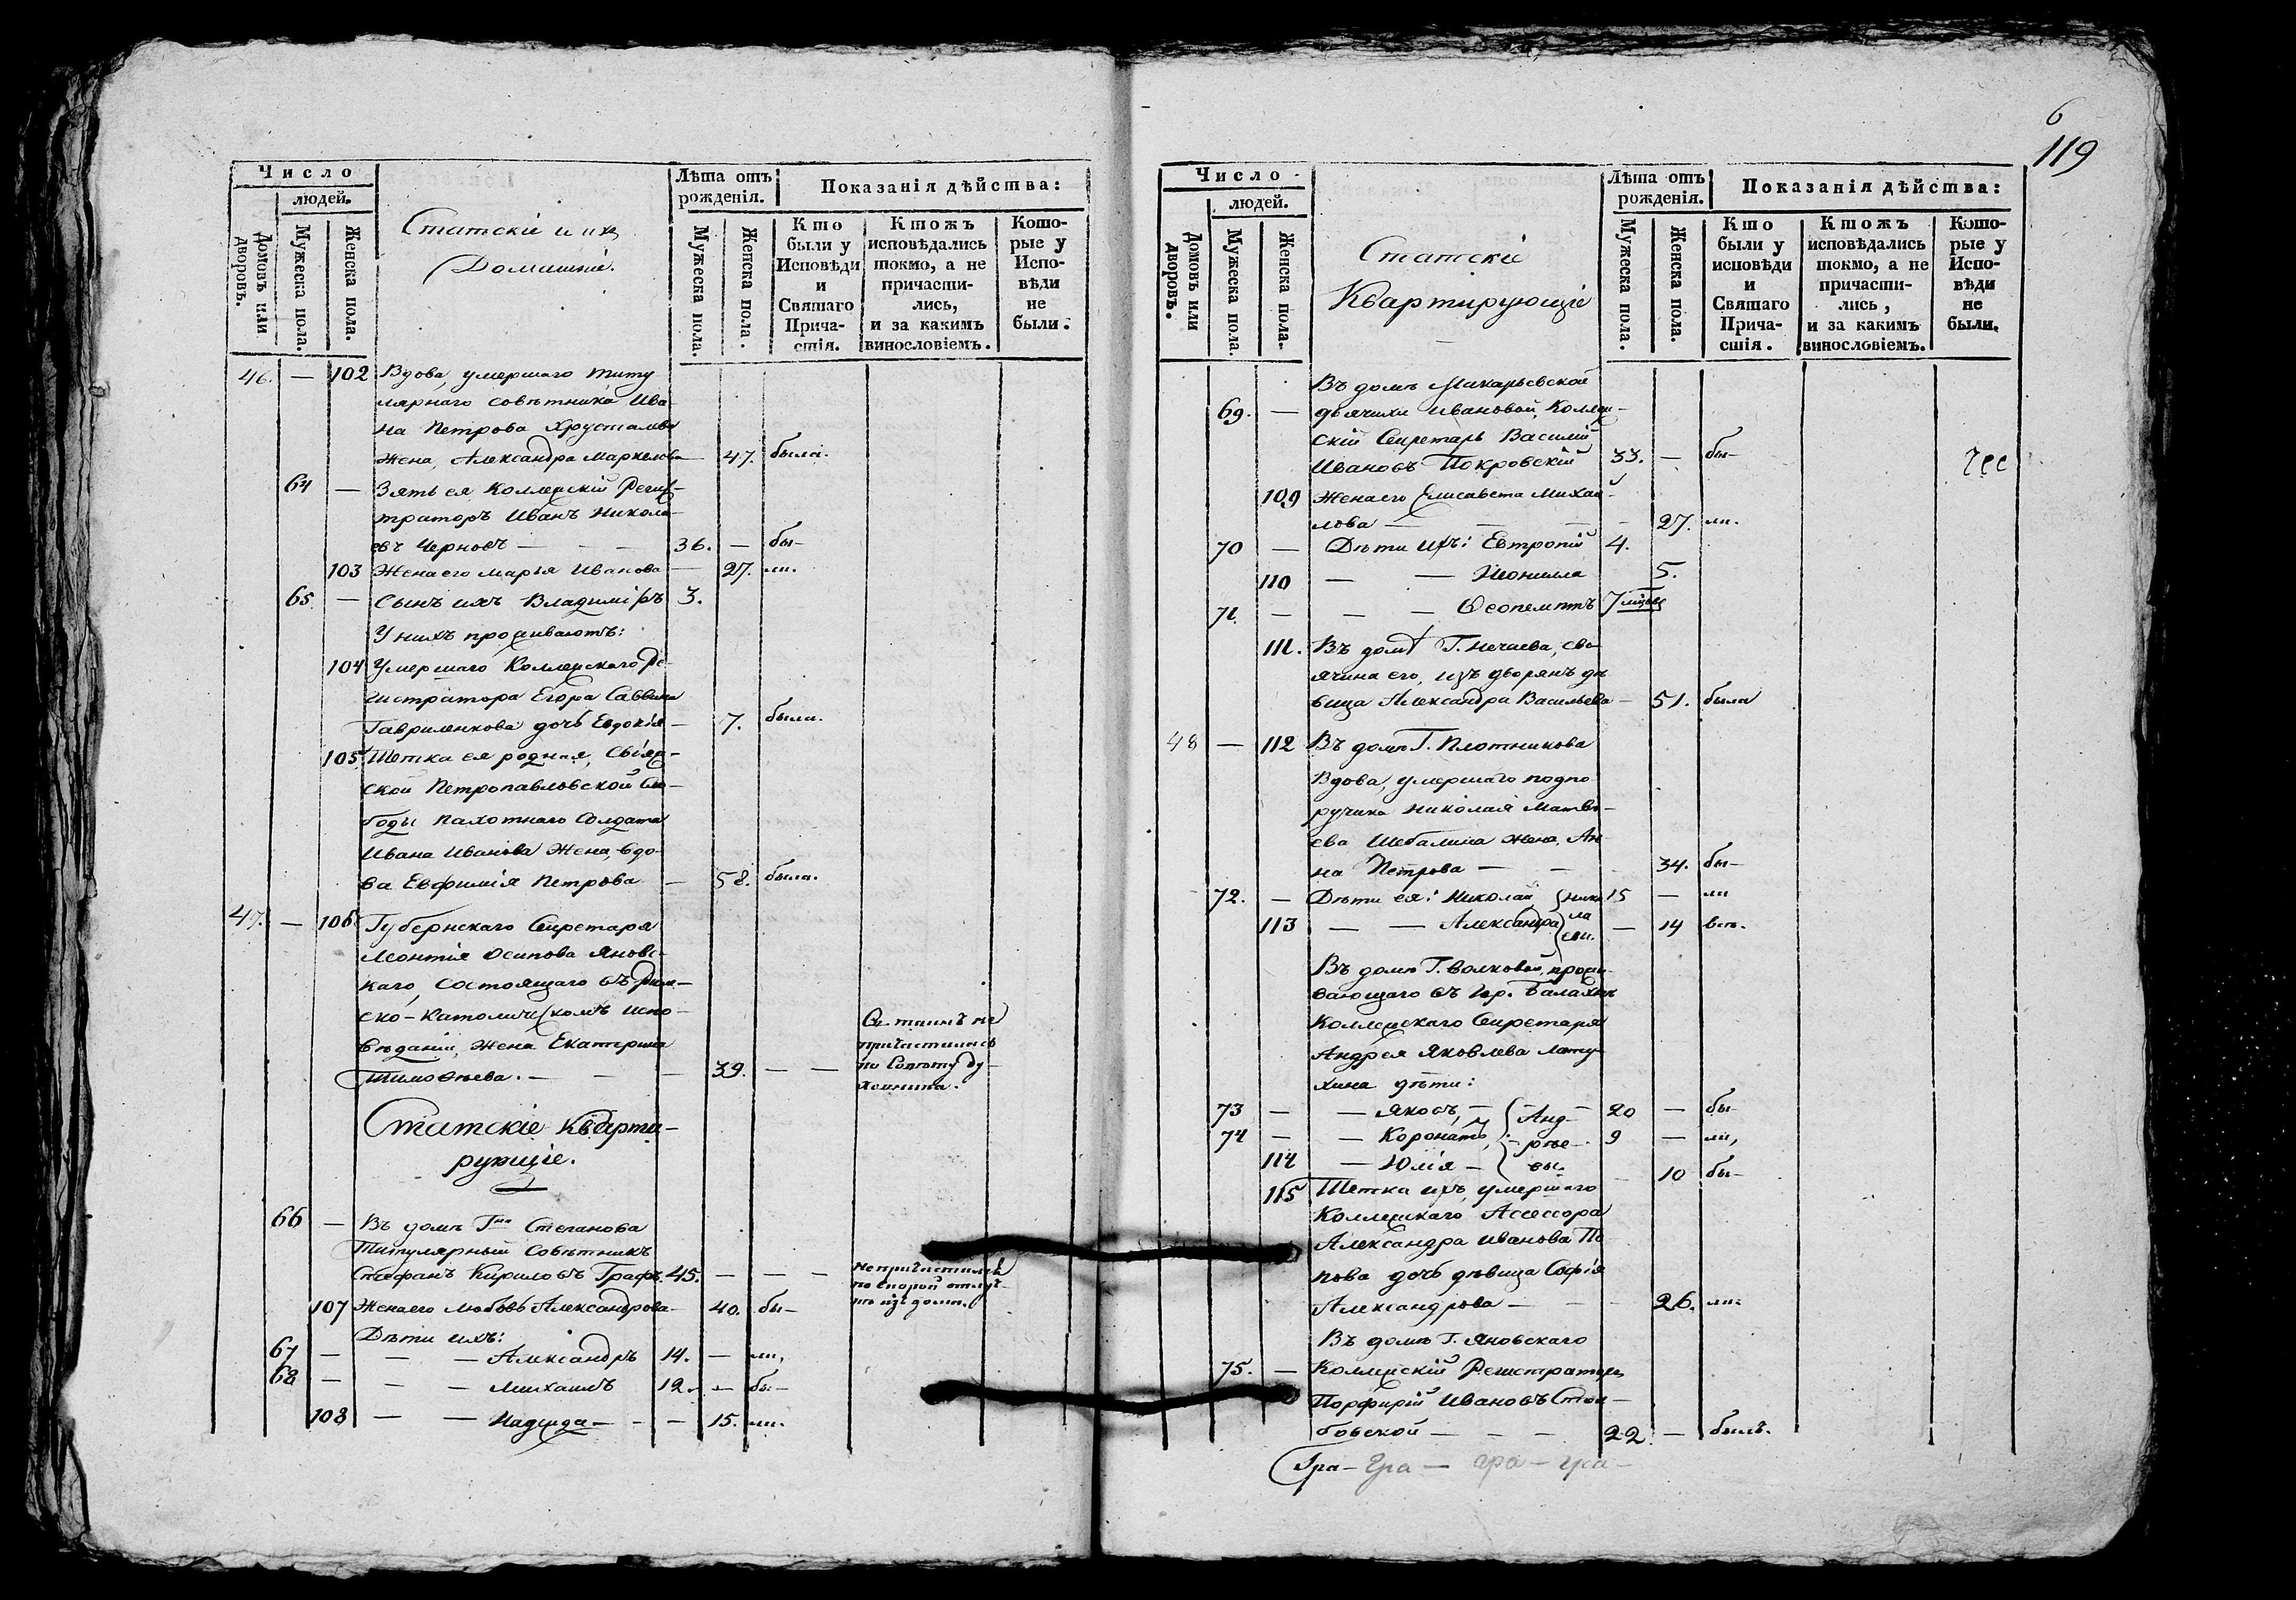 Число
людей.
Домовъ или дворовъ.
Мужеска пола.
Женска пола.
Статскіе и ихъ
Домашніе.
Лѣта отъ
рожденія.
Мужеска пола.
Женска пола.
Показанія дѣйства:
Кто
были у
Исповѣди
и
Святаго
Прича-
стія.
Ктожъ
исповѣдались
токмо, а не
причасти-
лись,
и за какимъ
винословіемъ.
Кото-
рые у
Испо-
вѣди
не
были.
46. — 102 Вдова, умершаго титу
лярнаго совѣтника Ива
на Петрова Хрусталева
жена, Александра Маркелова — 47. была.
64 — Зять ея Коллежскій Регис-
траторъ Иванъ Никола-
евъ Черновъ — — — 36. — бы-
103 Жена его Марья Иванова — 27. ли.
65 — Сынъ ихъ Владиміръ 3.
У нихъ проживаютъ:
104 Умершаго Коллежскаго Ре-
гистратора Егора Саввина
Гавриленкова дочь Евдокія — 7. была.
105 Тетка ея родная, Свіяж-
ской Петропавловской Сло-
боды пахотнаго Солдата
Ивана Иванова жена, вдо-
ва Евфимія Петрова — 58. была.
47. — 106 Губернскаго Секретаря
Леонтія Осипова Яновс-
каго, состоящаго въ Рим-
ско-католическомъ испо-
вѣданіи, жена Екатерина
Тимофѣева. — — — 39. — —
Св. таинъ не
причастилась
по Совѣту ду-
ховника.
Статскіе Кварти-
рующіе.
66 — Въ домѣ Гна Степанова
Титулярный Совѣтникъ
Стефанъ Кириловъ Графъ. 45. — — —
не причастился
по скорой отлуч-
кѣ изъ дома.
107 Жена его Любовь Александрова — 40. бы-
Дѣти ихъ:
67 — — — Александръ 14. — ли,
68 — — — Михаилъ 12. — бы-
108 — — Надежда — — — 15. ли.
6
119
Число
людей.
Домовъ или дворовъ.
Мужеска пола.
Женска пола.
Статскіе
Квартирующіе
Лѣта отъ
рожденія.
Мужеска пола.
Женска пола.
Показанія дѣйства:
Кто
были у
исповѣди
и
Святаго
Прича-
стія.
Ктожъ
исповѣдались
токмо, а не
причасти-
лись,
и за какимъ
винословіемъ.
Кото-
рые у
Испо-
вѣди
не
были.
Въ домѣ Макарьевской
69. — дьячихи Ивановой, Коллеж-
скій Секретарь Василій
Ивановъ Покровскій 33. — бы-
109 Жена его Елисавета Михай-
лова — — — — 27. ли.
70 — Дѣти ихъ: Евтропій 4.
110 — — Неонилла 5.
71. — — — Ѳеопемптъ 7 мѣсяц
111. Въ домѣ Г. Нечаева, сво-
ячина его, изъ дворянъ дѣ-
вица Александра Васильева — 51. была
48 — 112 Въ домѣ Г. Плотникова
Вдова, умершаго подпо
ручика Николая Матвѣ-
ева Шебалина жена, Ан-
на Петрова — — 34. бы-
72. — Дѣти ея: Николай, Нико 15 — ли
113 — — Александра ла — 14 всѣ.
еви.
Въ домѣ Г. Волковой, прожи-
вающаго въ гор. Балахнѣ
Коллежскаго Секретаря
Андрея Яковлева Лату-
хина дѣти:
73 — — Яковъ, — Анд- 20 — бы-
74 — — Коронатъ, рѣе- 9 — ли,
114 — Юлія — вы. 10 бы-
115 Тетка ихъ, умершаго
Коллежскаго Ассессора
Александра Иванова По
пова дочь дѣвица Софія
Александрова — — — 26. ли.
Въ домѣ Г. Яновскаго
75. — Коллежскій Регистраторъ
Порфирій Ивановъ Стол-
бовской — — — 22. — былъ.
Гра — гра — гра — гра —